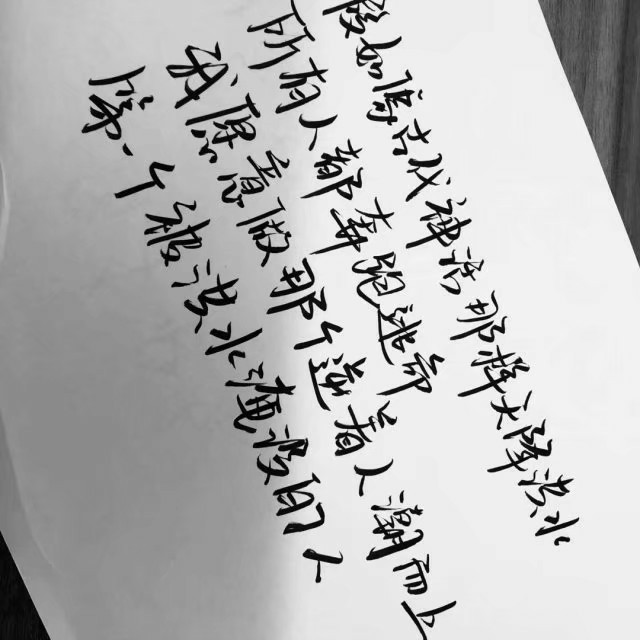 假如像古代神话那样天降洪水
所有人都奔跑逃命
我愿意做那个逆着人潮而上
第一个被洪水淹没的人